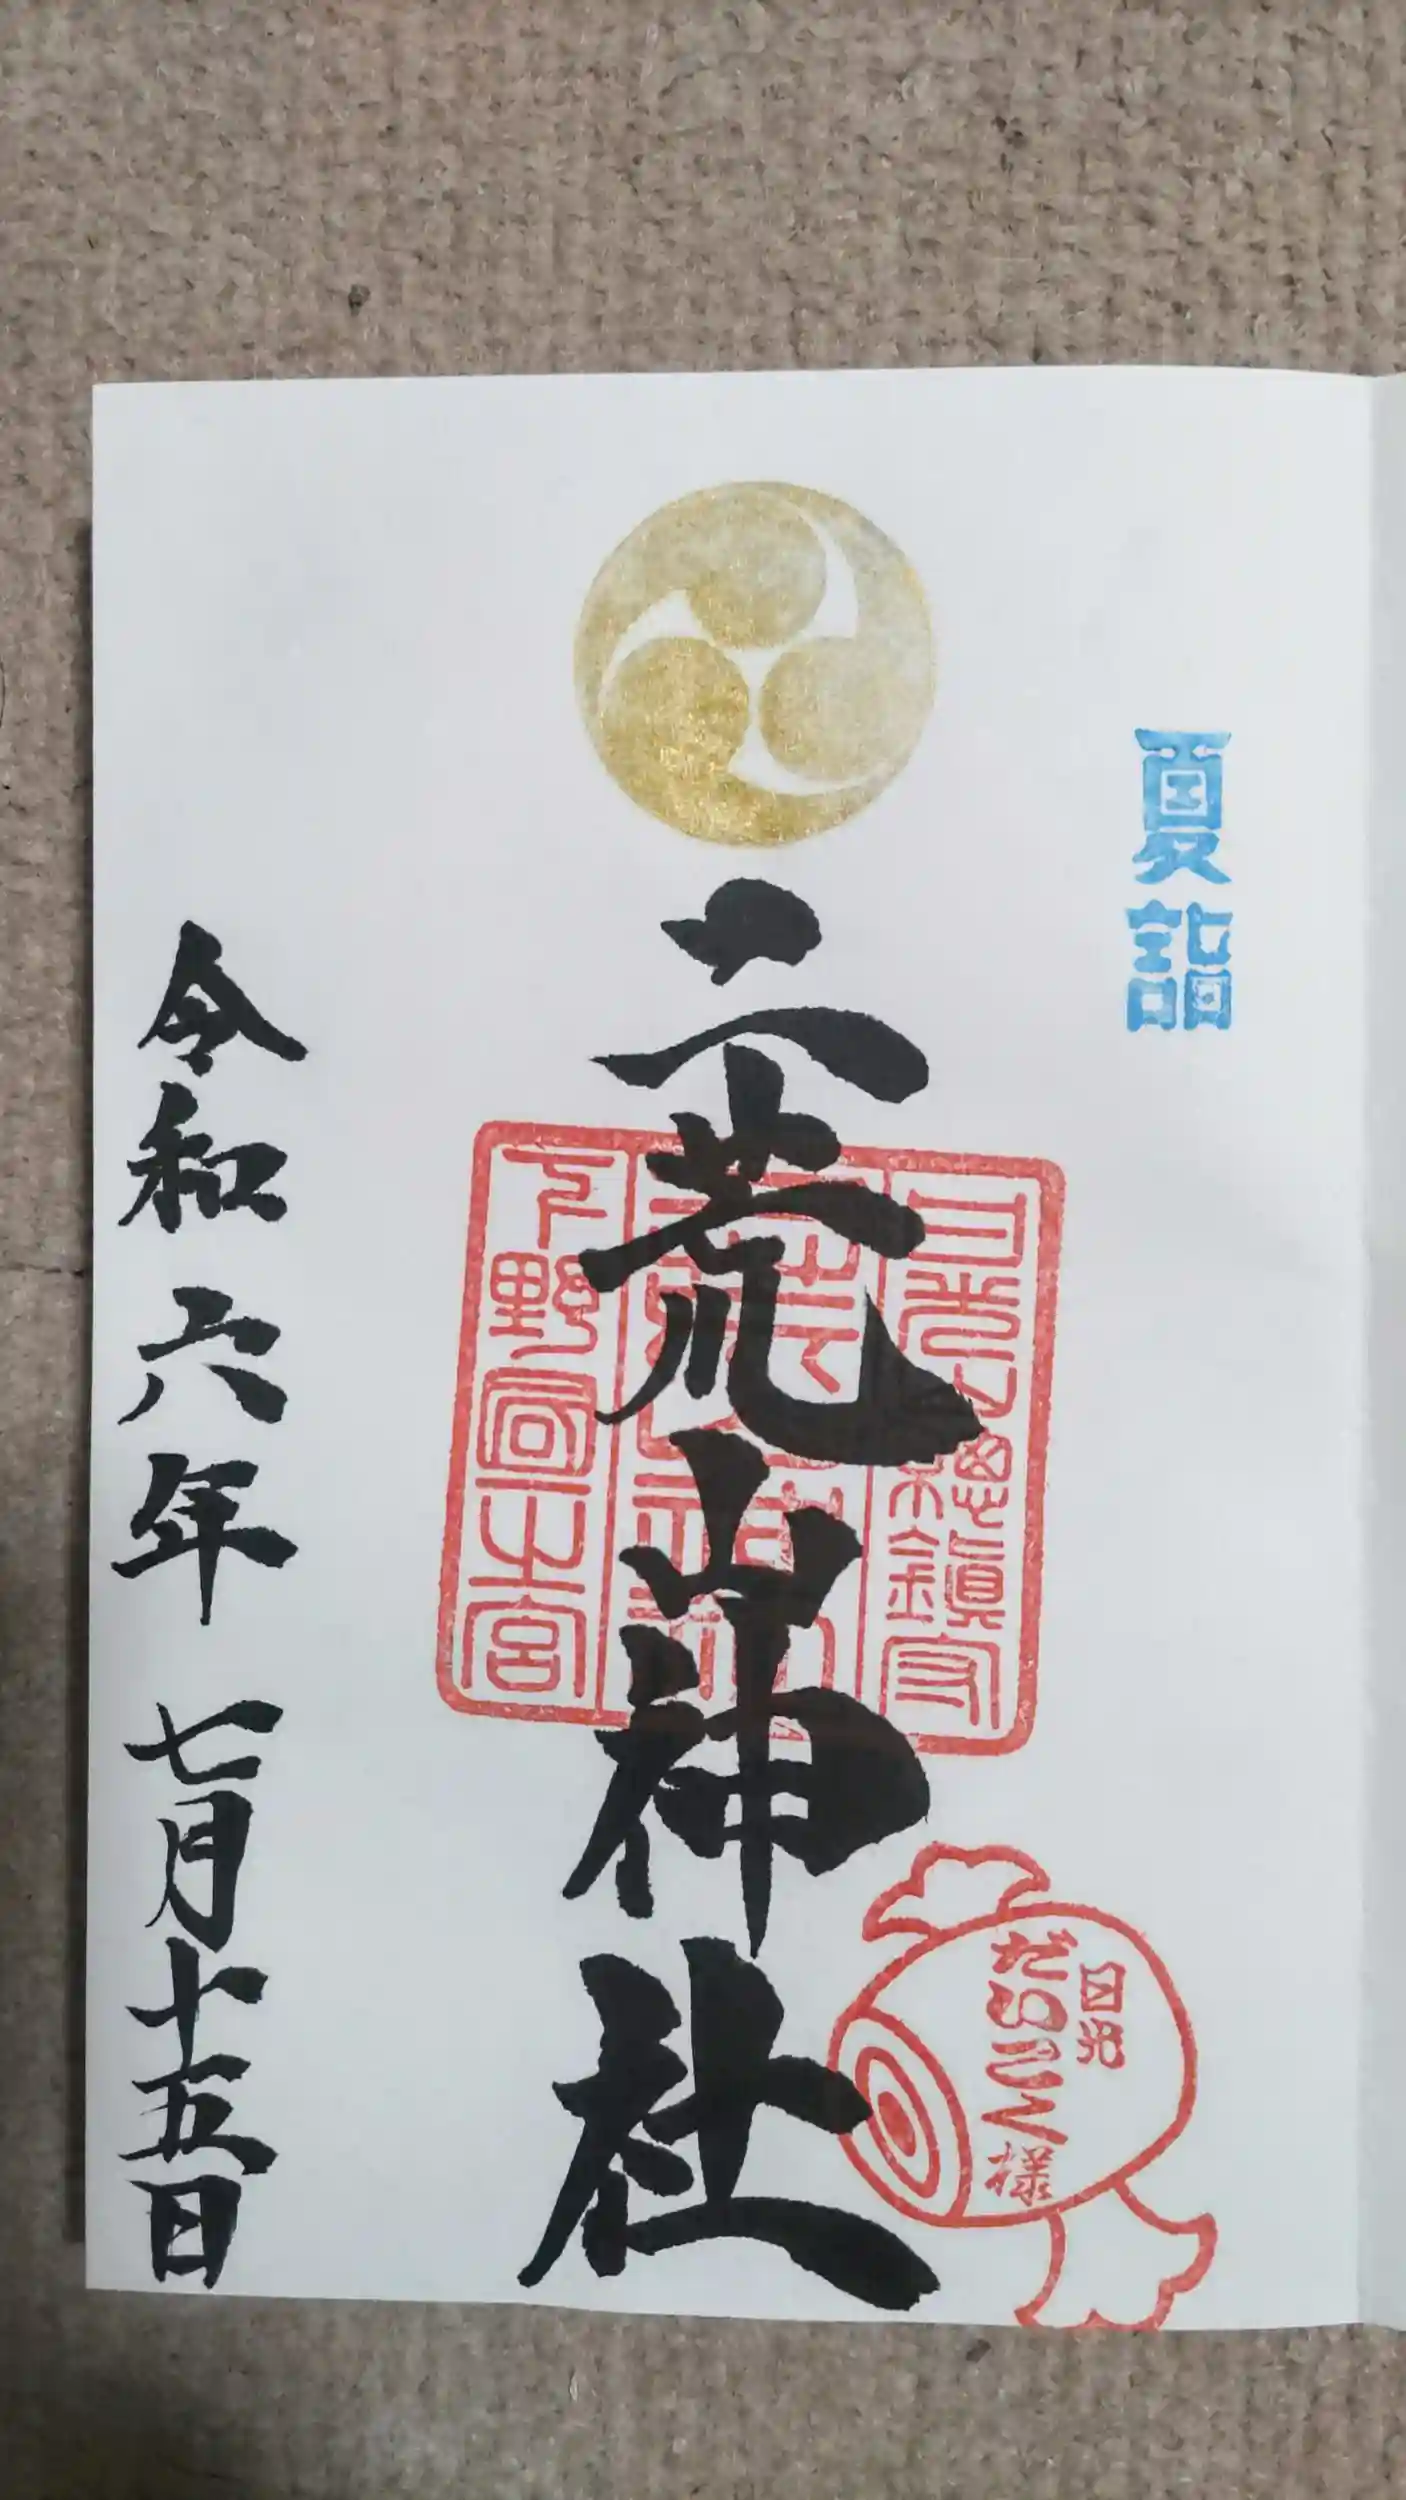 夏詣
二荒山神社
日光山総鎮守
下野國一之宮
日光
だいこく様
令和六年 七月十五日